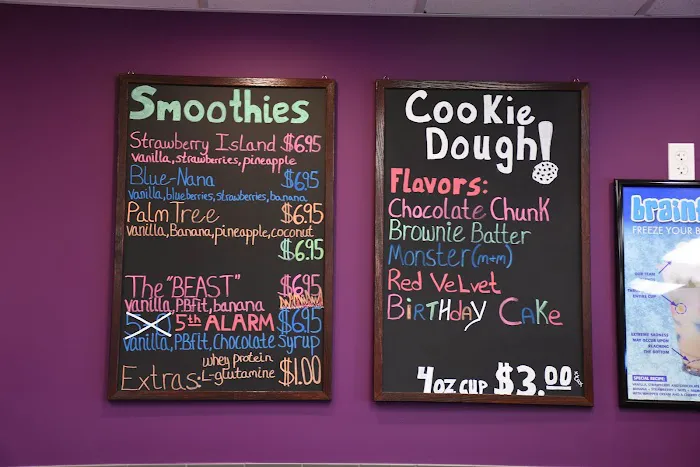 Smoothies
Strawberry Island $6.95
vanilla, strawberries, pineapple
Blue-Nana $6.95
vanilla, blueberries, strawberries, banana
Palm Tree $6.95
vanilla, Banana, pineapple, coconut
$6.95
The "BEAST" $6.95
vanilla, PBfit, banana
5th ALARM $6.95
vanilla, PBfit, Chocolate Syrup
Extras: whey protein
L-glutamine $1.00
Cookie
Dough!
Flavors:
Chocolate Chunk
Brownie Batter
Monster (m+m)
Red Velvet
Birthday Cake
4oz cup $3.00
brain
FREEZE YOUR B
SPECIAL RECIPE: